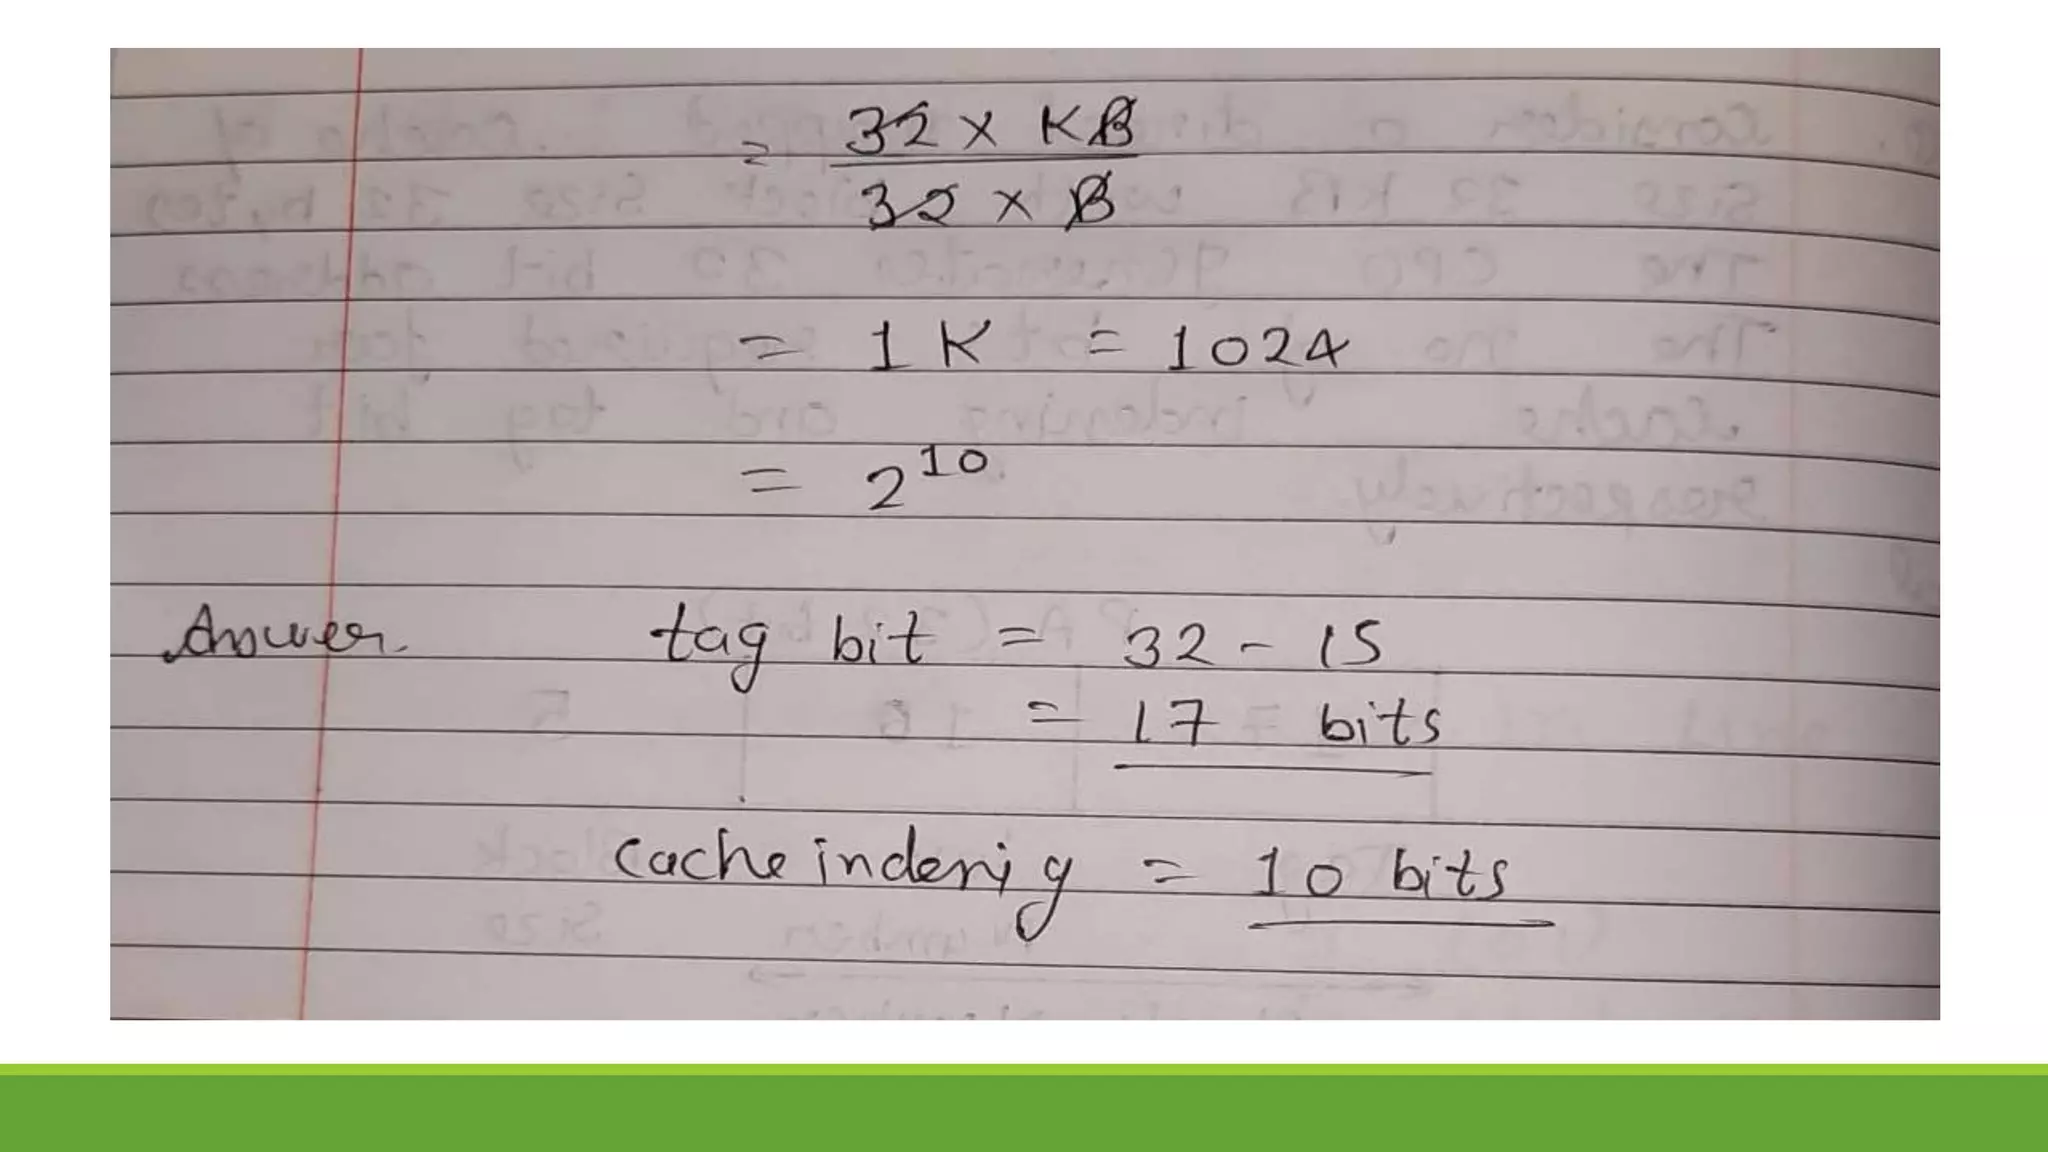 = 32 x KB
32 x B
= 1 K = 1024
= 2^10
Answer. tag bit = 32 - 15
= 17 bits
cache indenig = 10 bits